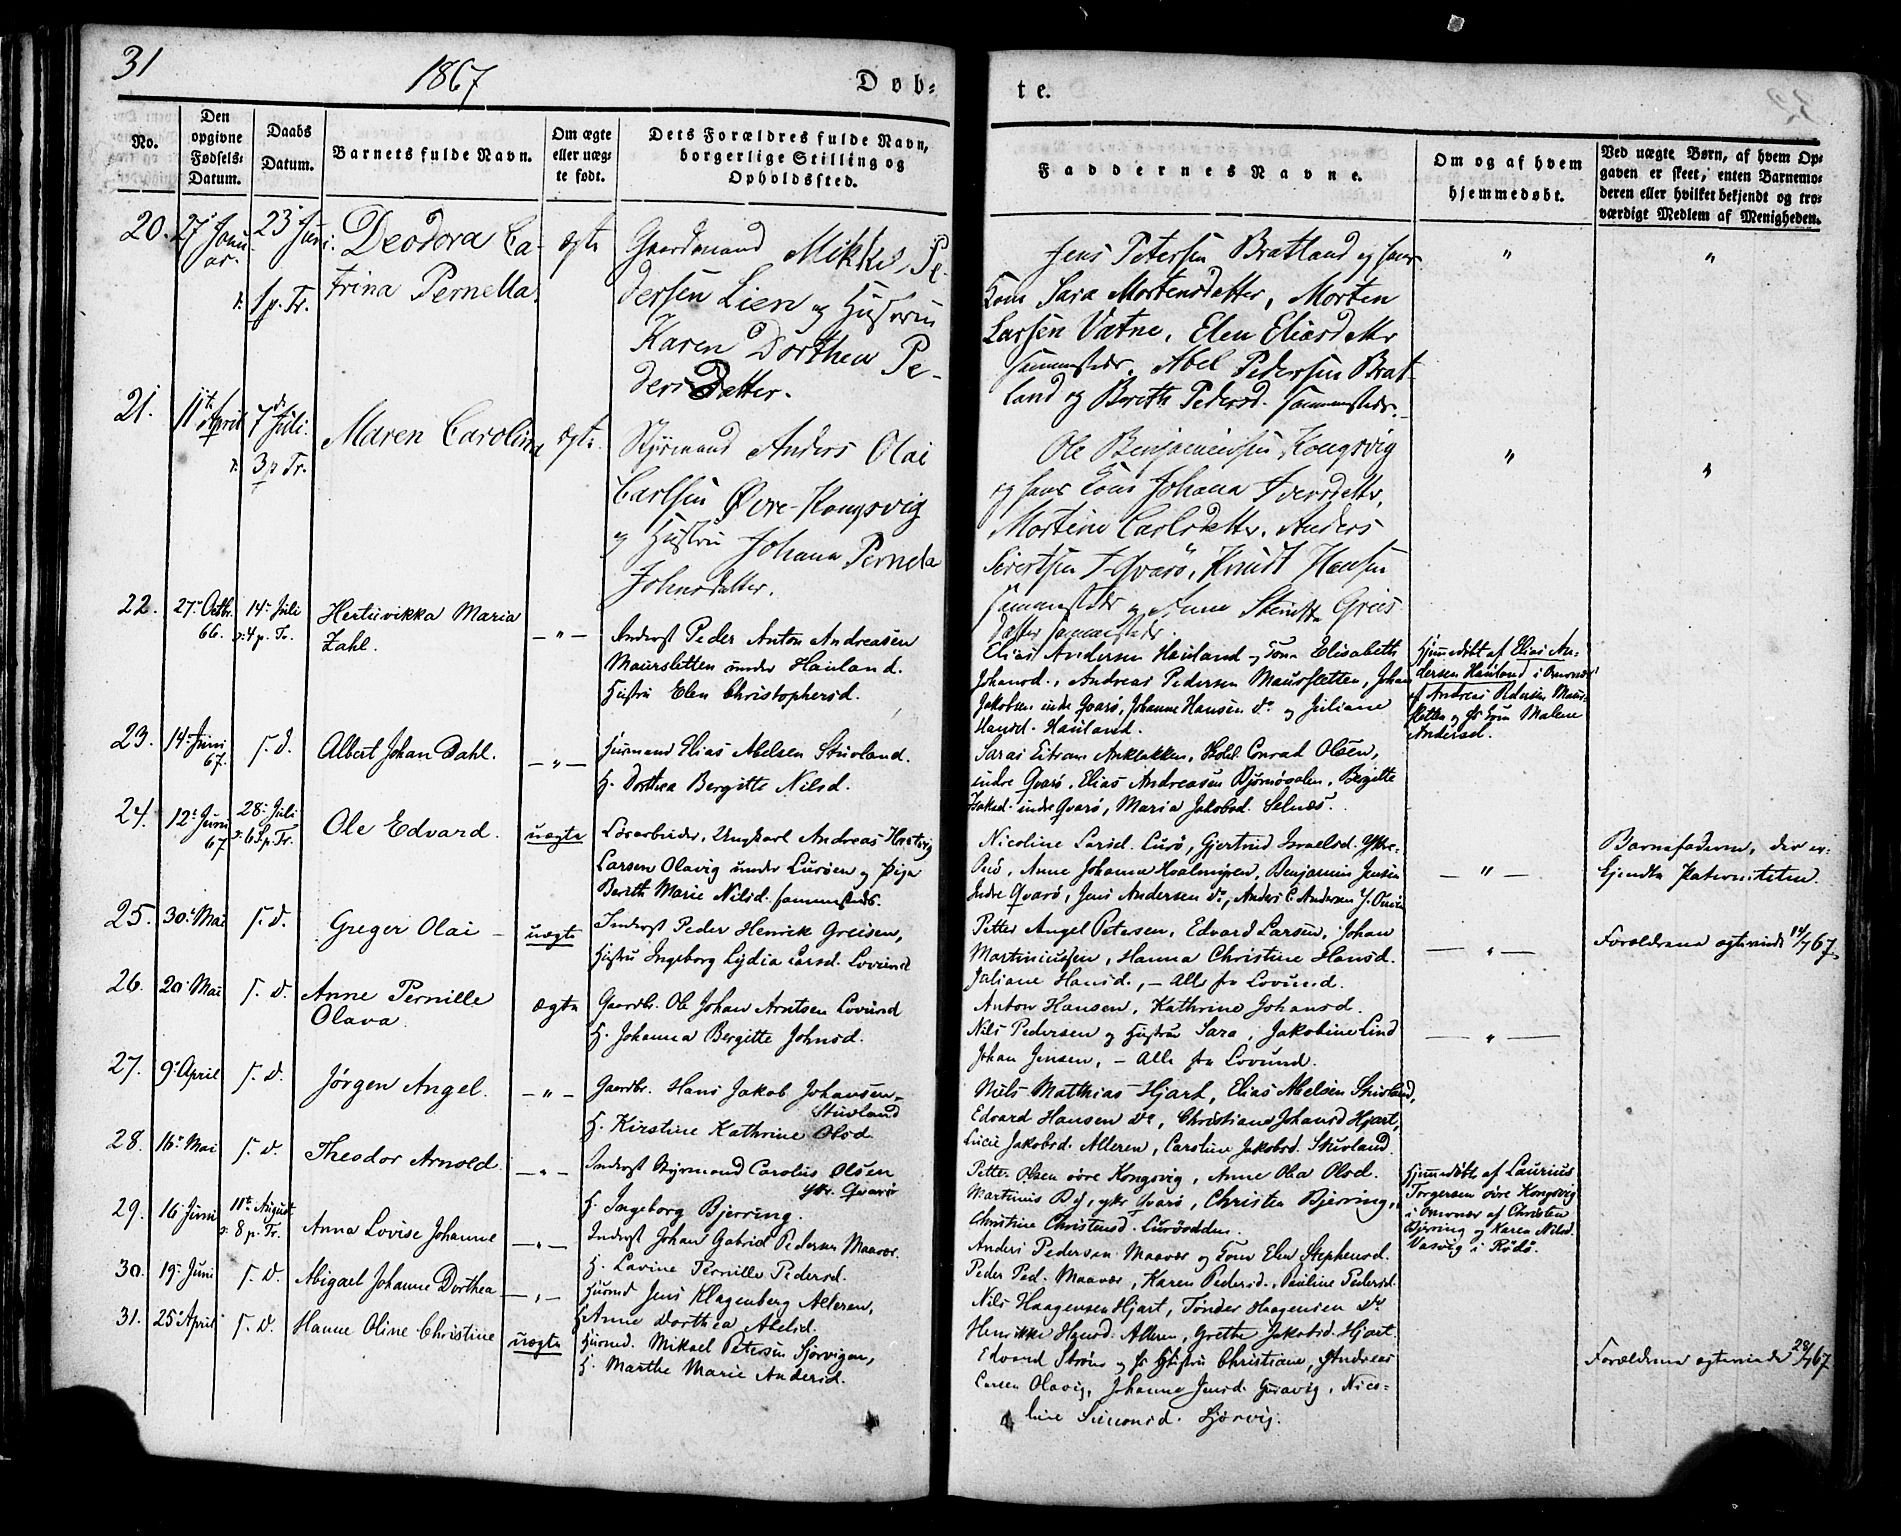 31
1867
Døb-
te.
No.
Den opgivne Fødsels-Datum.
Daabs Datum.
Barnets fulde Navn.
Om ægte eller uægte født.
Dets Forældres fulde Navn, borgerlige Stilling og Opholdssted.
Faddernes Navne.
Om og af hvem hjemmedøbt.
Ved uægte Børn, af hvem Opgaven er skeet, enten Barnemoderen eller hvilket bekjendt og troværdigt Medlem af Menigheden.
20. 27 Januar. 23 Juni Deodora Ca- ægte Gaardmand Mikkel Pe- Jens Petersen Bratland og hans " "
1 p. Tr. trina Pernella. dersen Lien og Hustru Kone Sara Mortensdatter, Morten
Karen Dorthea Pe- Larsen Vatne, Elen Eliasdatter
dersdatter. sammesteds. Abel Pedersen Brat-
land og Bereth Pedersd. sammesteds.
21. 11te April 7de Juli. Maren Carolina ægte. Styrmand Anders Olai Ole Benjaminsen Kongsvig " "
3 p Tr. Carlsen Øvre-Kongsvig og hans Kone Johana Iversdatter,
og Hustru Johana Pernela Mortine Carlsdatter. Anders
Johnsdatter. Sivertsen Qvarö, Knudt Hansen
sammesteds og Anne Greis
datter sammesteds.
22. 27 Octbr. 66. 14 Juli 4 p. Tr. Hertuvikka Maria —"— Inderst Peder Anton Andreasen Elias Andersen Hauland og Kone Elisabeth Hjemmedøbt af Elias An-
Zahl. Maursletten under Hauland. Johansd., Andreas Pedersen Maursletten, Johan dersen Hauland i Overvær
Hustru Elen Christophersd. Jakobsen indre Qvarø, Johanne Hansen do og Juliane af Andreas Pedersen Maur-
Hansd. Hauland. sletten og Kone Malene
Andersd.
23. 14 Juni 67. S. D. Albert Johan Dahl. —"— Huusmand Elias Abelsen Stuvland. Conrad Olsen,
H. Dorthea Bergitte Nilsd. indre Qvarø, Elias Andreasen Bjørnsgalen, Bergitte
Jakobsd. indre Qvarø, Maria Jakobsd. Selnæs.
24. 12 Juni 67 28 Juli 6 S. p. Tr. Ole Edvard. uægte Løsarbeider, Ungkarl Andreas Hartvig Nicoline Larsd. Lurö, Gjertrud Israelsd. Yttre- —"— Barnefaderen, der er-
Larsen Olavig under Lurøen og Pige Onö, Anne Johanna Kvalmyren, Benjamin Jensen kjendte Paterniteten.
Bereth Marie Nilsd. sammesteds. Indre Qvarø, Jens Andersen do, Anders C. Andersen
25. 30 Mai S. D. Greger Olai — uægte Inderst Peder Henrik Greisen, Petter Angel Petersen, Edvard Larsen, Johan —"— Forældrene ægteviede 14/7 67.
Hustru Ingeborg Lydia Larsd. Lovund Martiniussen, Hanna Christine Hansd.
Juliane Hansd., – Alle fra Lovund.
26. 20 Mai S. D. Anne Pernille ægte Gaardbr. Ole Johan Arntsen Lovund Anton Hansen, Kathrine Johansd. —"—
Olava. H. Johanna Bergitte Johnsd. Nils Pedersen og Hustru Sara, Jakobine Lind
Johan Jensen, – Alle fra Lovund.
27. 9 April S. D. Jørgen Angel. —"— Gaardbr. Hans Jakob Johansen Nils Matthias Hjart, Elias Abelsen Stuvland,
Stuvland Edvard Hansen do, Christiane Johansd Hjart,
H. Kirstine Kathrine Olsd. Lucie Jakobsd. Alteren, Caroline Jakobsd. Stuvland.
28. 16 Mai S. D. Theodor Arnold. —"— Inderst Styrmand Carolus Olsen Petter Olsen øvre Kongsvig, Anne Ola Olsd. Hjemmedøbt af Laurius
Ytr. Qvarø Martinus yttr Qvarø, Christen Bjerring, Torgersen øvre Kongsvig
H. Ingeborg Bjerring. Christine Christensd. Lurøodden. i Overvær af Christen
Bjerring og Karen Nilsd.
Vasvig i Rödö.
29. 16 Juni 11te August 8 p. Tr. Anna Lovise Johanne —"— Inderst Johan Gabriel Pedersen Maavær. Anders Pedersen Maavær og Kone Elen Stephensd.
H. Lavine Pernille Pedersd. Peder Ped. Maavær, Karen Pedersd., Pauline Pedersd.
30. 19 Juni S. D. Abigael Johanne Dorthea —"— Huusmd Jens Klagenberg Alteren, Nils Haagensen Hjart, Tønder Haagensen do
H. Anne Dorthea Abelsd. Henrikke Hansd. Alteren, Grethe Jakobsd. Hjart.
31. 25 April S. D. Hanne Oline Christine uægte Huusmd. Mikael Petersen Sjørvigen, Edvard Strøm og Hustru Christiane, Andreas Forældrene ægteviede 28/7 67.
H. Marthe Marie Andersd. Larsen Olavig, Johanna Jensd. Nico-
line Simonsd. Sjørvig.